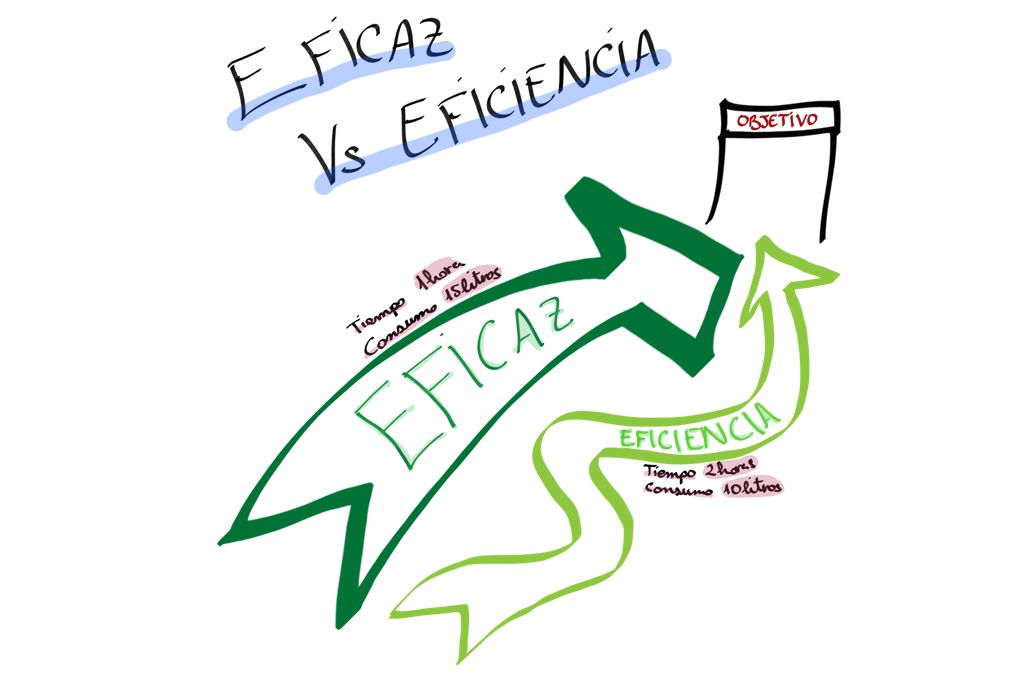 EFICAZ
Vs EFICIENCIA
OBJETIVO
Tiempo 1 hora
Consumo 15 litros
EFICAZ
EFICIENCIA
Tiempo 2 horas
Consumo 10 litros